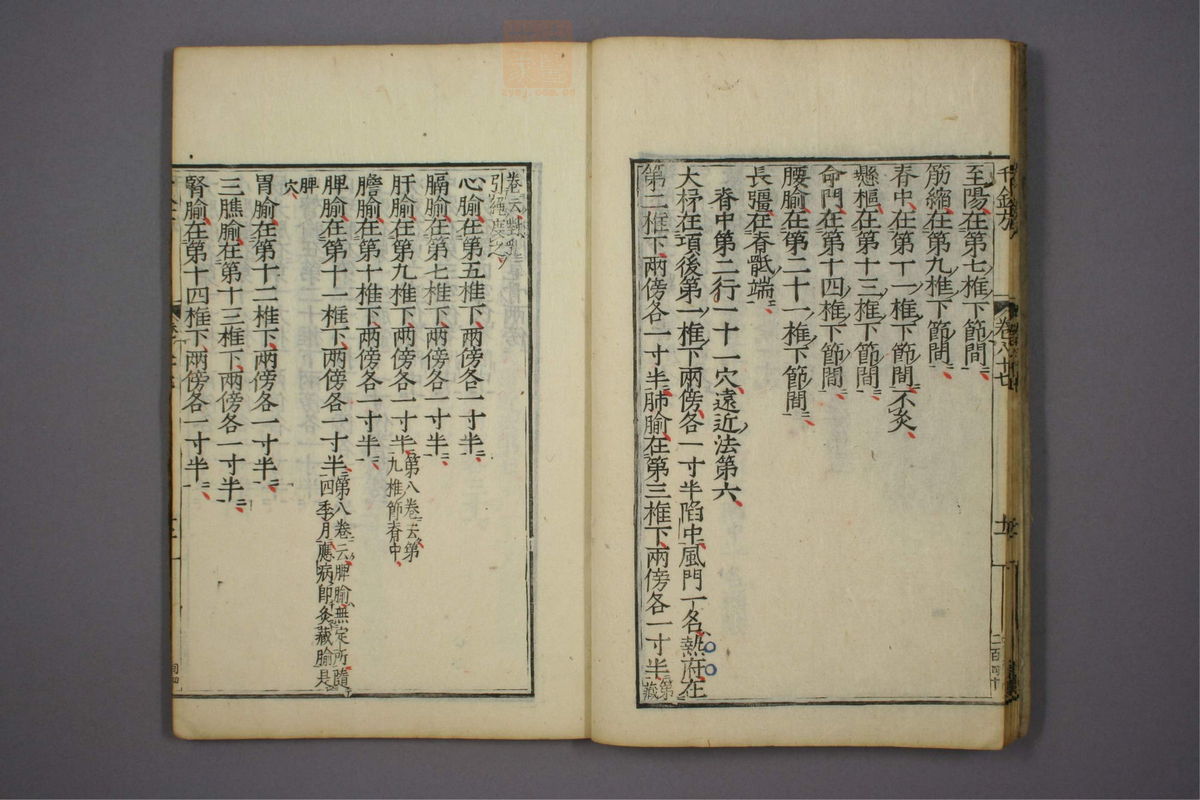 千金方
卷八十七
二百四十
至陽在第七椎下節間
筋縮在第九椎下節間
脊中在第十一椎下節間不灸
懸樞在第十三椎下節間
命門在第十四椎下節間
腰腧在第二十一椎下節間
長彊在脊骶端
脊中第二行一十一穴遠近法第六
大杼在項後第一椎下兩傍各一寸半陷中風門一名熱府在
第二椎下兩傍各一寸半肺腧在第三椎下兩傍各一寸半第
藏
卷云對乳
引繩度之
心腧在第五椎下兩傍各一寸半
膈腧在第七椎下兩傍各一寸半
肝腧在第九椎下兩傍各一寸半第八卷云第
九椎節脊中
膽腧在第十椎下兩傍各一寸半
脾腧在第十一椎下兩傍各一寸半第八卷云脾腧無定所隨
四季月應病即灸藏腧是
脾
穴
胃腧在第十二椎下兩傍各一寸半
三膲腧在第十三椎下兩傍各一寸半
腎腧在第十四椎下兩傍各一寸半